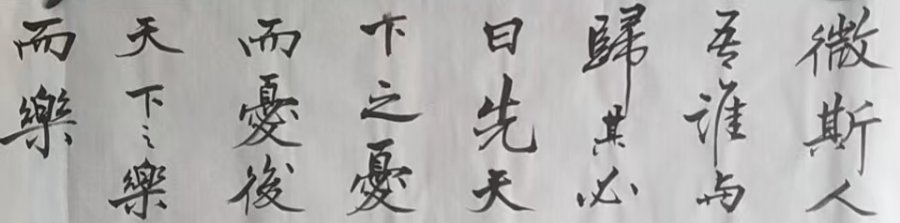 微斯人
吾谁与
歸其必
曰先天
下之憂
而憂後
天下之樂
而樂